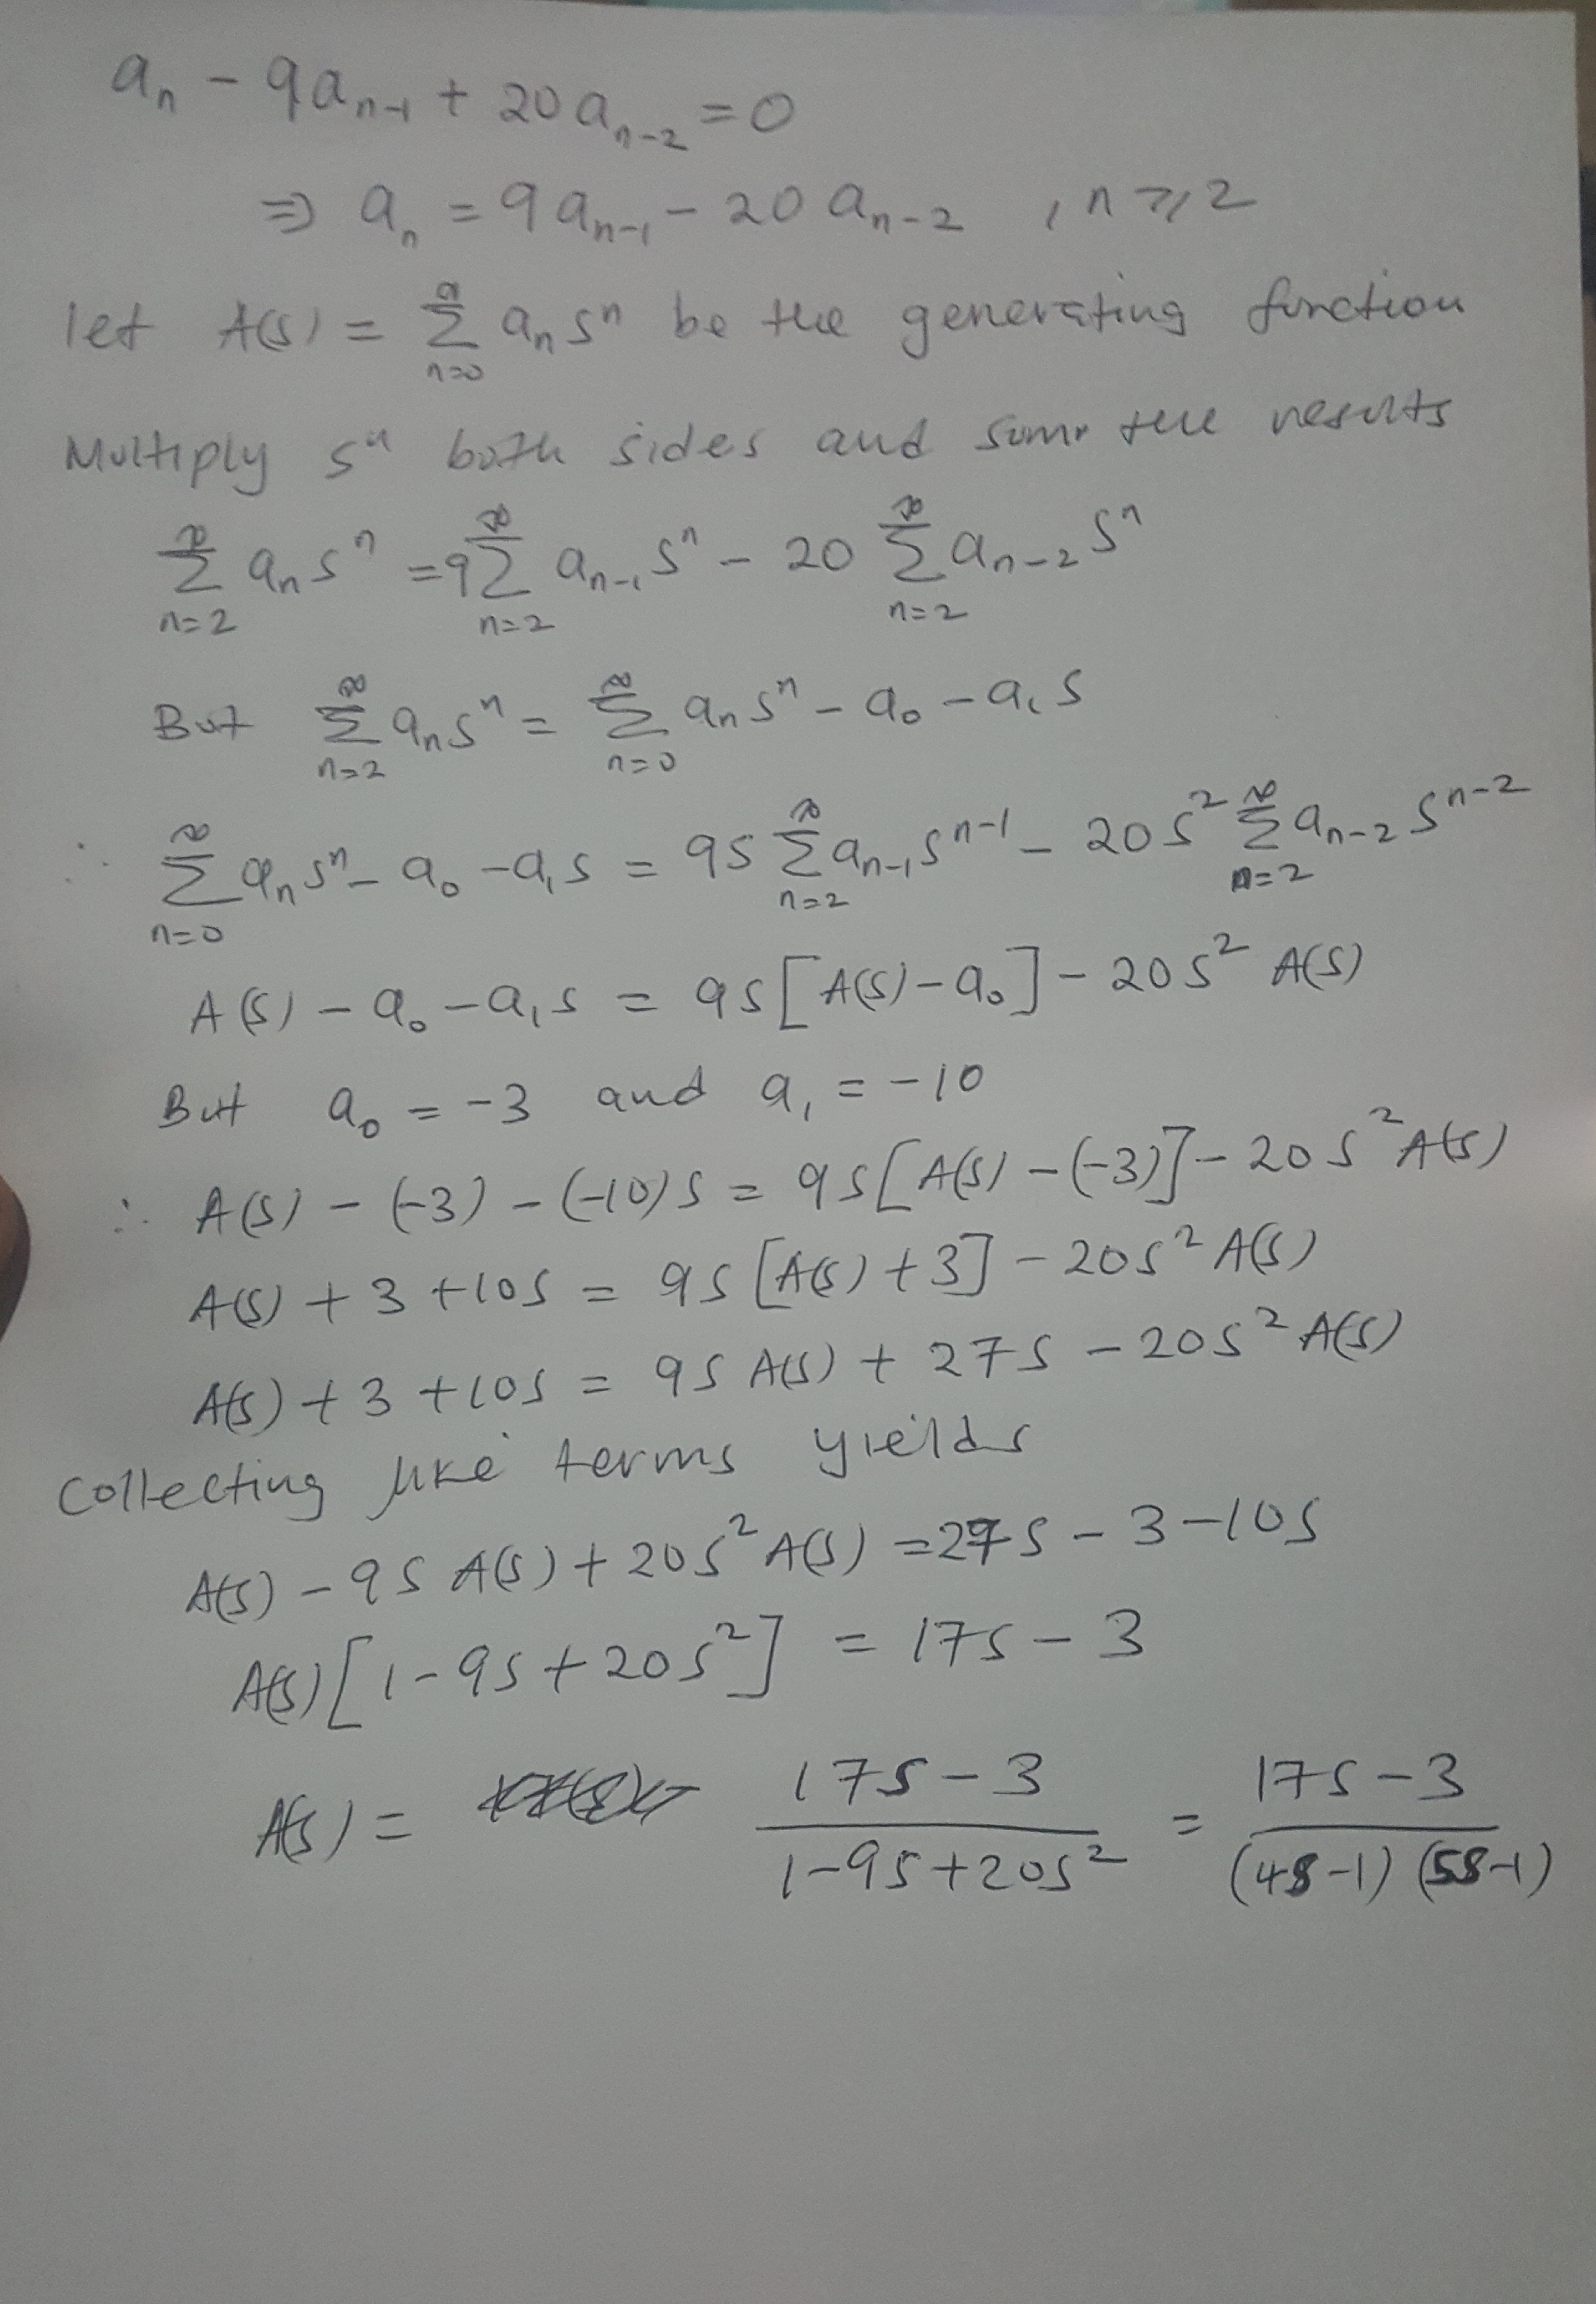 aₙ - 9aₙ₋₁ + 20aₙ₋₂ = 0
⇒ aₙ = 9aₙ₋₁ - 20aₙ₋₂ , n ≥ 2
let A(s) = ∑_{n=0}^{∞} aₙsⁿ be the generating function
Multiply sⁿ both sides and sum the results
∑_{n=2}^{∞} aₙsⁿ = 9∑_{n=2}^{∞} aₙ₋₁sⁿ - 20∑_{n=2}^{∞} aₙ₋₂sⁿ
But ∑_{n=2}^{∞} aₙsⁿ = ∑_{n=0}^{∞} aₙsⁿ - a₀ - a₁s
∴ ∑_{n=0}^{∞} aₙsⁿ - a₀ - a₁s = 9s∑_{n=2}^{∞} aₙ₋₁sⁿ⁻¹ - 20s²∑_{n=2}^{∞} aₙ₋₂sⁿ⁻²
A(s) - a₀ - a₁s = 9s[A(s) - a₀] - 20s² A(s)
But a₀ = -3 and a₁ = -10
∴ A(s) - (-3) - (-10)s = 9s[A(s) - (-3)] - 20s²A(s)
A(s) + 3 + 10s = 9s[A(s) + 3] - 20s²A(s)
A(s) + 3 + 10s = 9sA(s) + 27s - 20s²A(s)
Collecting like terms yields
A(s) - 9sA(s) + 20s²A(s) = 27s - 3 - 10s
A(s)[1 - 9s + 20s²] = 17s - 3
A(s) = (17s - 3)/(1 - 9s + 20s²) = (17s - 3)/((4s-1)(5s-1))